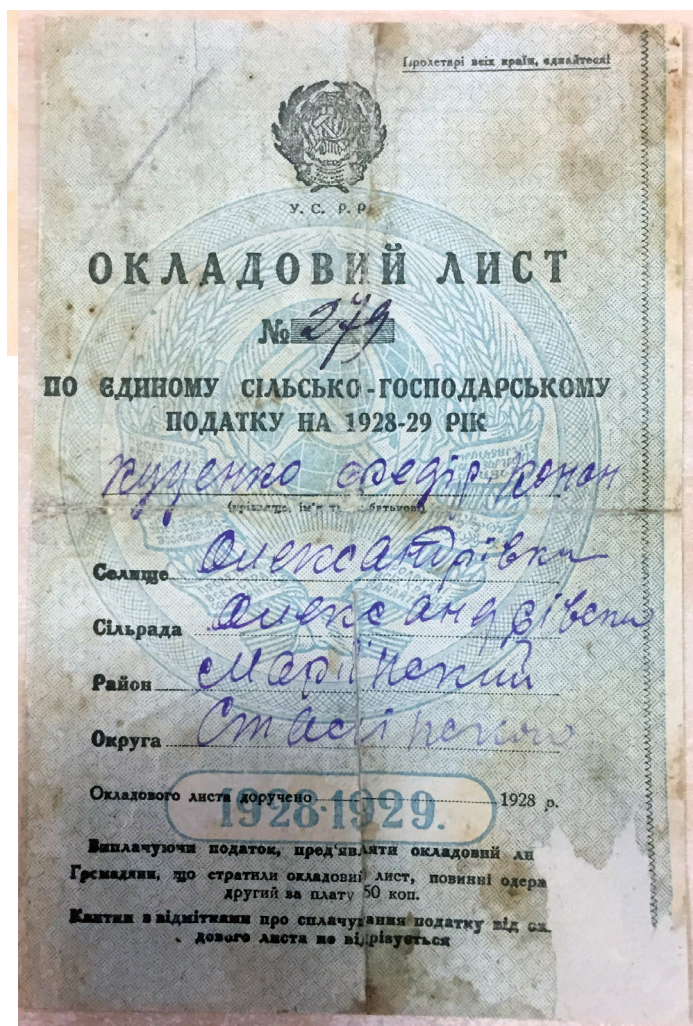 Пролетарі всіх країн, єднайтеся!
У. С. Р. Р.
ОКЛАДОВИЙ ЛИСТ
№ 279
ПО ЄДИНОМУ СІЛЬСЬКО-ГОСПОДАРСЬКОМУ
ПОДАТКУ НА 1928-29 РІК
Куценко Федір Конон
(прізвище, ім'я та по батькові)
Селище Олександрівка
Сільрада Олександрівська
Район Мар'їнский
Округа
Окладового листа доручено 1928 р.
1928-1929.
Виплачуючи податок, пред'являти окладовий ли
Громадяни, що стратили окладовий лист, повинні одерж
другий за плату 50 коп.
Квитки з відмітками про сплачування податку від ок
дового листа не відрізується